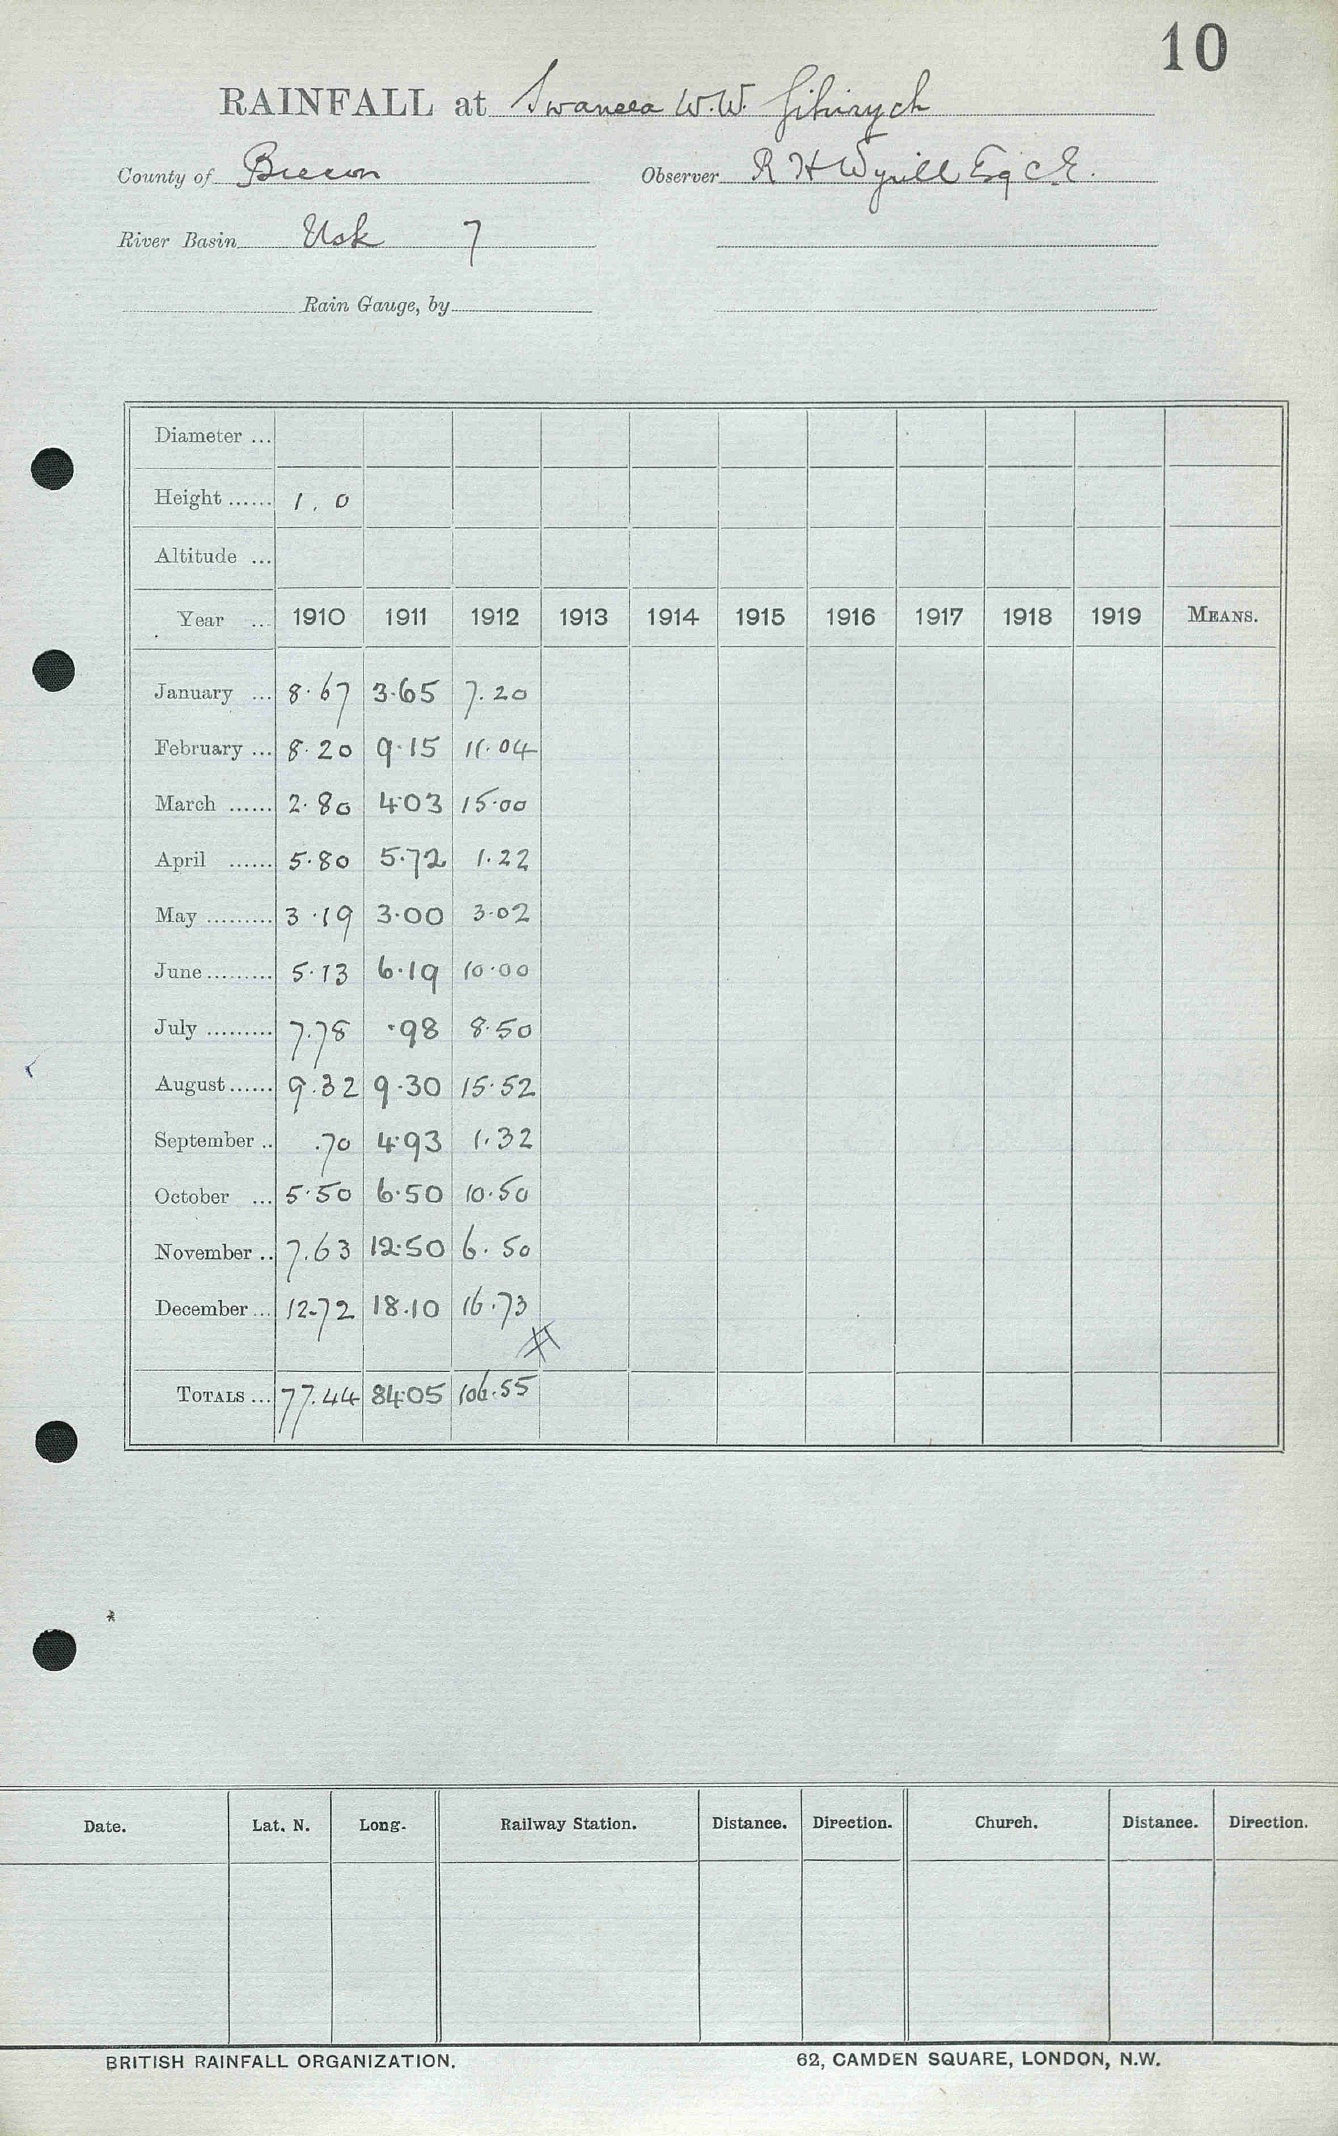 10
RAINFALL at Swansea W.W. Gihirych
County of Brecon Observer R H Wyrill Esq C.E.
River Basin Usk 7
Rain Gauge, by
Diameter ...
Height ...... 1.0
Altitude ...
Year ... 1910 1911 1912 1913 1914 1915 1916 1917 1918 1919 MEANS.
January ... 8.67 3.65 7.20
February ... 8.20 9.15 11.04
March ...... 2.80 4.03 15.00
April ...... 5.80 5.72 1.22
May ......... 3.19 3.00 3.02
June ......... 5.13 6.19 10.00
July ......... 7.78 .98 8.50
August ...... 9.32 9.30 15.52
September .. .70 4.93 1.32
October ... 5.50 6.50 10.50
November .. 7.63 12.50 6.50
December ... 12.72 18.10 16.73
TOTALS ... 77.44 84.05 106.55
Date. Lat. N. Long. Railway Station. Distance. Direction. Church. Distance. Direction.
BRITISH RAINFALL ORGANIZATION. 62, CAMDEN SQUARE, LONDON, N.W.